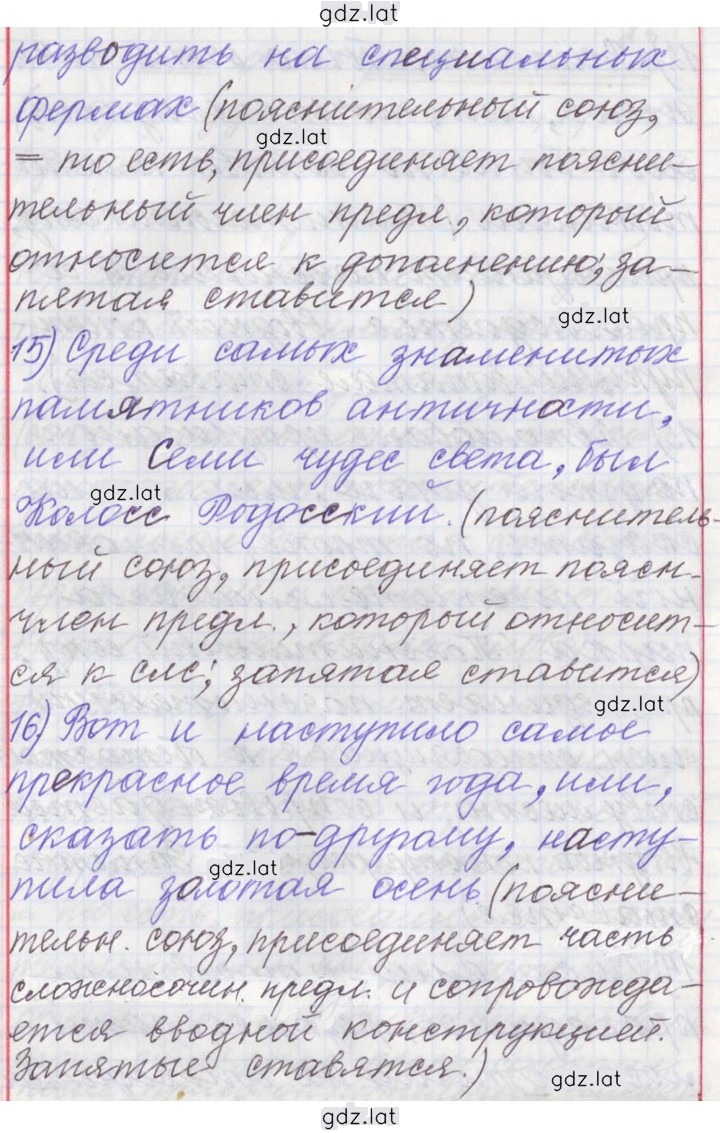 gdz.lat
разводить на специальных
фермах (пояснительный союз,
gdz.lat
= то есть, присоединяет поясни-
тельный член предл., который
относится к дополнению; за-
пятая ставится)
gdz.lat
15) Среди самых знаменитых
памятников античности,
или Семи чудес света, был
gdz.lat
Колосс Родосский. (пояснитель-
ный союз, присоединяет поясн.
член предл., который относит-
ся к слс; запятая ставится)
gdz.lat
16) Вот и наступило самое
прекрасное время года, или,
сказать по-другому, насту-
gdz.lat
пила золотая осень (поясни-
тельн. союз, присоединяет часть
сложносочин. предл. и сопровожда-
ется вводной конструкцией.
Запятые ставятся.)
gdz.lat
gdz.lat